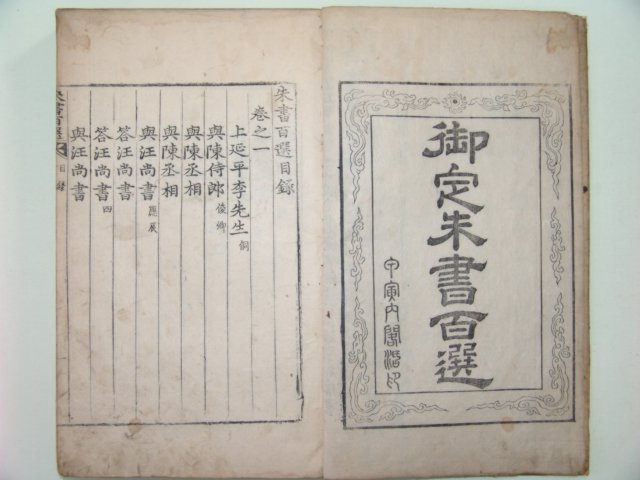 御定朱書百選
甲寅內閣活印
朱書百選目錄
卷之一
上延平李先生 侗
與陳侍郞 俊卿
與陳丞相
與陳丞相
與汪尚書 應辰
答汪尚書
答汪尚書 四
與汪尚書
朱書百選 目錄